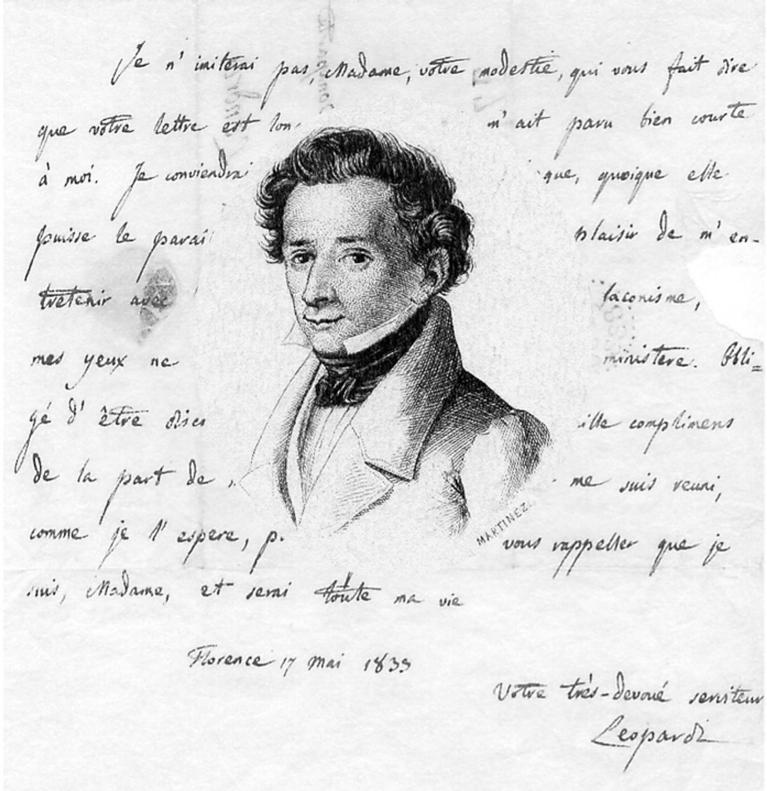 Je n' imiterai pas, Madame, votre modestie, qui vous fait dire
que votre lettre est lon- m' ait paru bien courte
à moi. Je conviendrai que, quoique elle
puisse le paraî plaisir de m' en-
tretenir avec laconisme,
mes yeux ne ministere. Obli=
gé d' être disc ille complimens
de la part de me suis reuni,
comme je l' espere, p. vous rappeller que je
suis, Madame, et serai toute ma vie
MARTINEZ.
Florence 17 mai 1833
Votre très-devoué serviteur
Leopardi